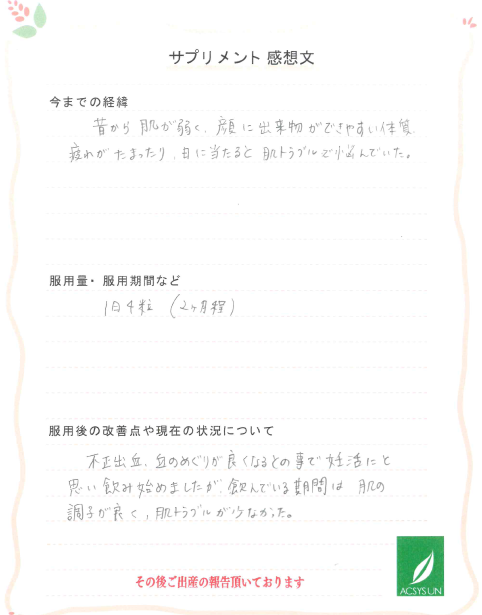 サプリメント 感想文
今までの経緯
昔から 肌が弱く、顔に出来物ができやすい体質、
疲れがたまったり、日に当たると 肌トラブルで悩んでいた。
服用量・服用期間など
1日4粒 (2ヶ月程)
服用後の改善点や現在の状況について
不正出血、血のめぐりが良くなるとの事で妊活にと
思い飲み始めましたが、飲んでいる期間は 肌の
調子が良く、肌トラブルが少なかった。
その後ご出産の報告頂いております
ACSYSUN